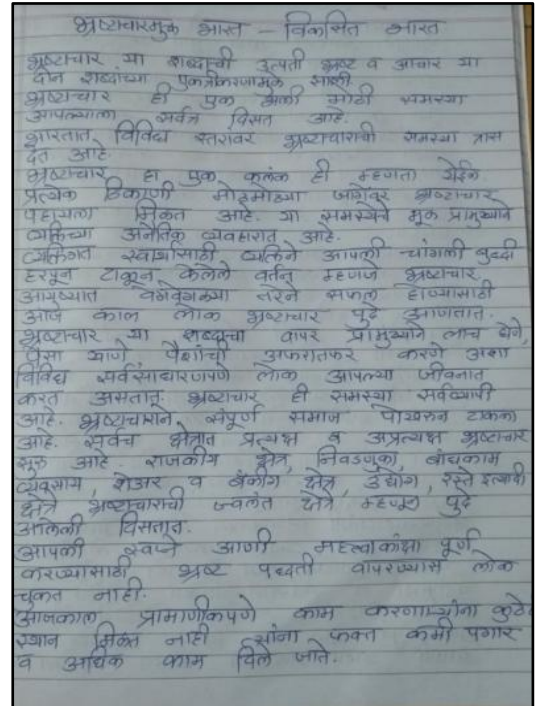 भ्रष्टाचारमुक्त भारत – विकसित भारत
भ्रष्टाचार या शब्दाची उत्पती भ्रष्ट व आचार या
दोन शब्दांच्या एकत्रीकरणामुळे झाली
भ्रष्टाचार ही एक अशी मोठी समस्या
आपल्याला सर्वत्र दिसत आहे.
भारतात विविध स्तरावर भ्रष्टाचाराची समस्या त्रास
देत आहे
भ्रष्टाचार हा एक कलंक ही म्हणता येईल
प्रत्येक ठिकाणी मोठमोठ्या जागेवर भ्रष्टाचार
पहायला मिळत आहे. या समस्येचे मूळ प्रामुख्याने
व्यक्तिच्या अनैतिक व्यवहारात आहे.
व्यक्तिगत स्वार्थासाठी व्यक्तिने आपली चांगली बुध्दी
हरपून टाकून केलेले वर्तन म्हणजे भ्रष्टाचार
आयुष्यात वेगवेगळ्या तरेने सफल होण्यासाठी
आज काल लोक भ्रष्टाचार पुढे आणतात.
भ्रष्टाचार या शब्दाचा वापर प्रामुख्याने लाच घेणे,
पैसा खाणे पैशांची अफरातफर करणे अशा
विविध सर्वसाधारणपणे लोक आपल्या जीवनात
करत असतात. भ्रष्टाचार ही समस्या सर्वव्यापी
आहे. भ्रष्टाचाराने संपूर्ण समाज पोखरून टाकला
आहे. सर्वच क्षेत्रात प्रत्यक्ष व अप्रत्यक्ष भ्रष्टाचार
सुरू आहे राजकीय क्षेत्र, निवडणुका, बांधकाम
व्यवसाय, शेअर व बँकींग क्षेत्र, उद्योग, रस्ते इत्यादी
क्षेत्रे भ्रष्टाचाराची ज्वलंत क्षेत्रे म्हणून पुढे
आलेली दिसतात.
आपली स्वप्ने आणी महत्वाकांक्षा पूर्ण
करण्यासाठी भ्रष्ट पध्दती वापरण्यास लोक
चुकत नाही.
आजकाल प्रामाणीकपणे काम करणाऱ्यांना कुठे
स्थान मिळत नाही त्यांना फक्त कमी पगार
व अधिक काम दिले जाते.